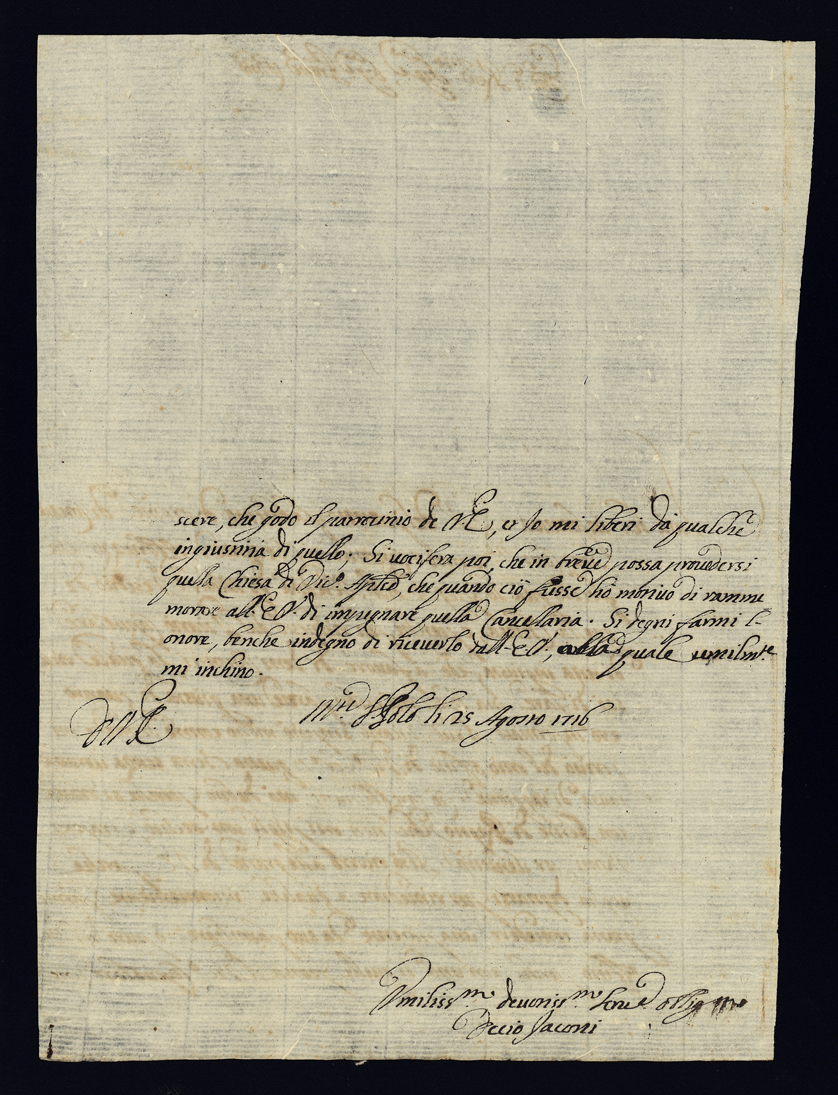 scere, che godo il patrocinio de VE, et Io mi liberi da qualche
ingiustitia di quello; Si vocifera poi, che in breve possa provedersi
quella Chiesa di Vic.o Aplco, che quando ciò fusse ho motivo di ramme
morare all'E.V. di impegnare quella Cancellaria. Si degni farmi l'
onore, benche indegno di riceverlo dall'E.V., alla quale umilmte
mi inchino.
Di V.E.
li 25 Agosto 1716
Umilissmo devotissmo serv.e obligmo
Decio Jaconi